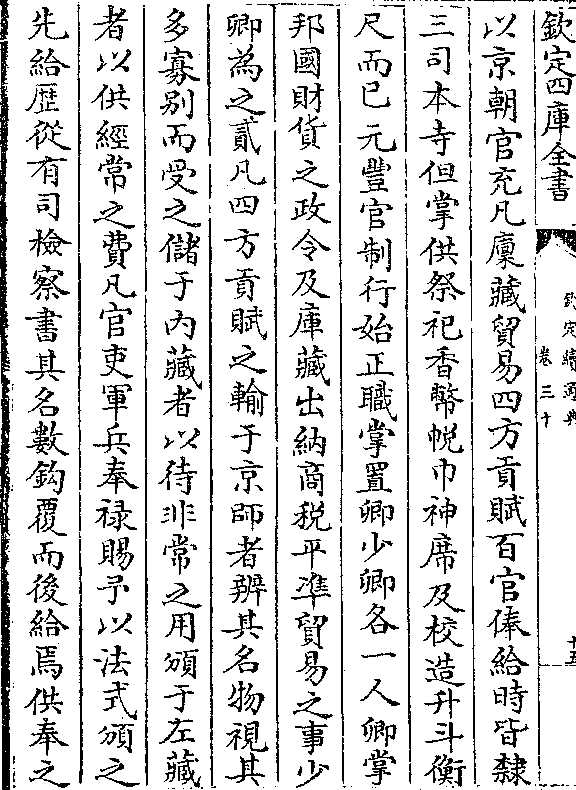 欽定四庫全書
欽定續通典
卷三十
十五
以京朝官充凡廩藏貿易四方貢賦百官俸給時皆隸
三司本寺但掌供祭祀香幣帨巾神席及校造升斗衡
尺而已元豐官制行始正職掌置卿少卿各一人卿掌
邦國財貨之政令及庫藏出納商稅平準貿易之事少
卿為之貳凡四方貢賦之輸于京師者辨其名物視其
多寡别而受之儲于内藏者以待非常之用頒于左藏
者以供經常之費凡官吏軍兵奉禄賜予以法式頒之
先給歴從有司檢察書其名數鈎覆而後給焉供奉之